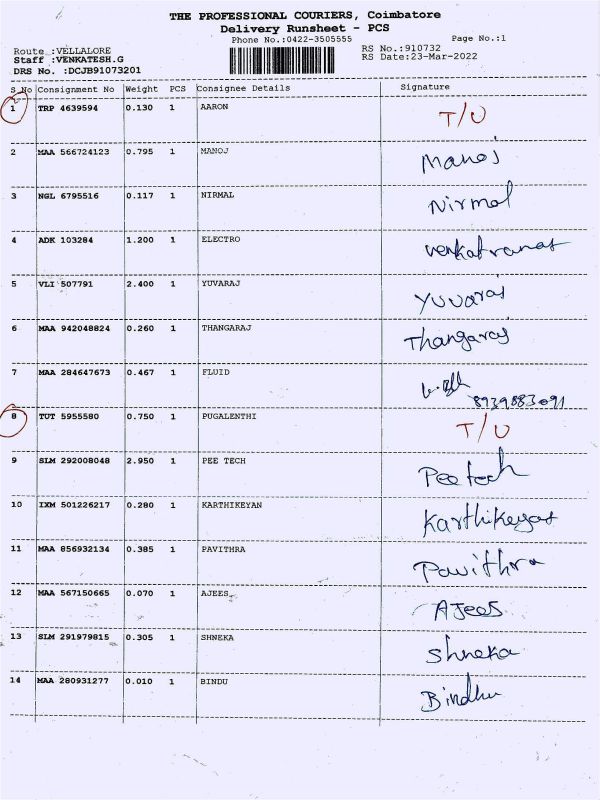 THE PROFESSIONAL COURIERS, Coimbatore
Delivery Runsheet - PCS
Phone No.:0422-3505555 Page No.:1
Route :VELLALORE RS No.:910732
Staff :VENKATESH.G RS Date:23-Mar-2022
DRS No. :DCJB91073201
S No Consignment No Weight PCS Consignee Details Signature
1 TRP 4639594 0.130 1 AARON T/U
2 MAA 566724123 0.795 1 MANOJ Manoj
3 NGL 6795516 0.117 1 NIRMAL Nirmal
4 ADK 103284 1.200 1 ELECTRO
5 VLI 507791 2.400 1 YUVARAJ Yuvaraj
6 MAA 942048824 0.260 1 THANGARAJ Thangaraj
7 MAA 284647673 0.467 1 FLUID 8939883091
8 TUT 5955580 0.750 1 PUGALENTHI T/U
9 SLM 292008048 2.950 1 PEE TECH Pee tech
10 IXM 501226217 0.280 1 KARTHIKEYAN Karthikeyan
11 MAA 856932134 0.385 1 PAVITHRA Pavithra
12 MAA 567150665 0.070 1 AJEES AJees
13 SLM 291979815 0.305 1 SHNEKA Shneka
14 MAA 280931277 0.010 1 BINDU Bindhu